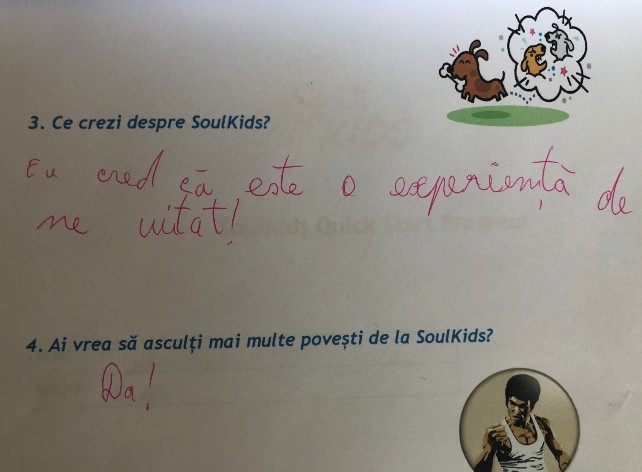 3. Ce crezi despre SoulKids?
Eu cred că este o experiență de
ne uitat!
4. Ai vrea să asculți mai multe povești de la SoulKids?
Da!